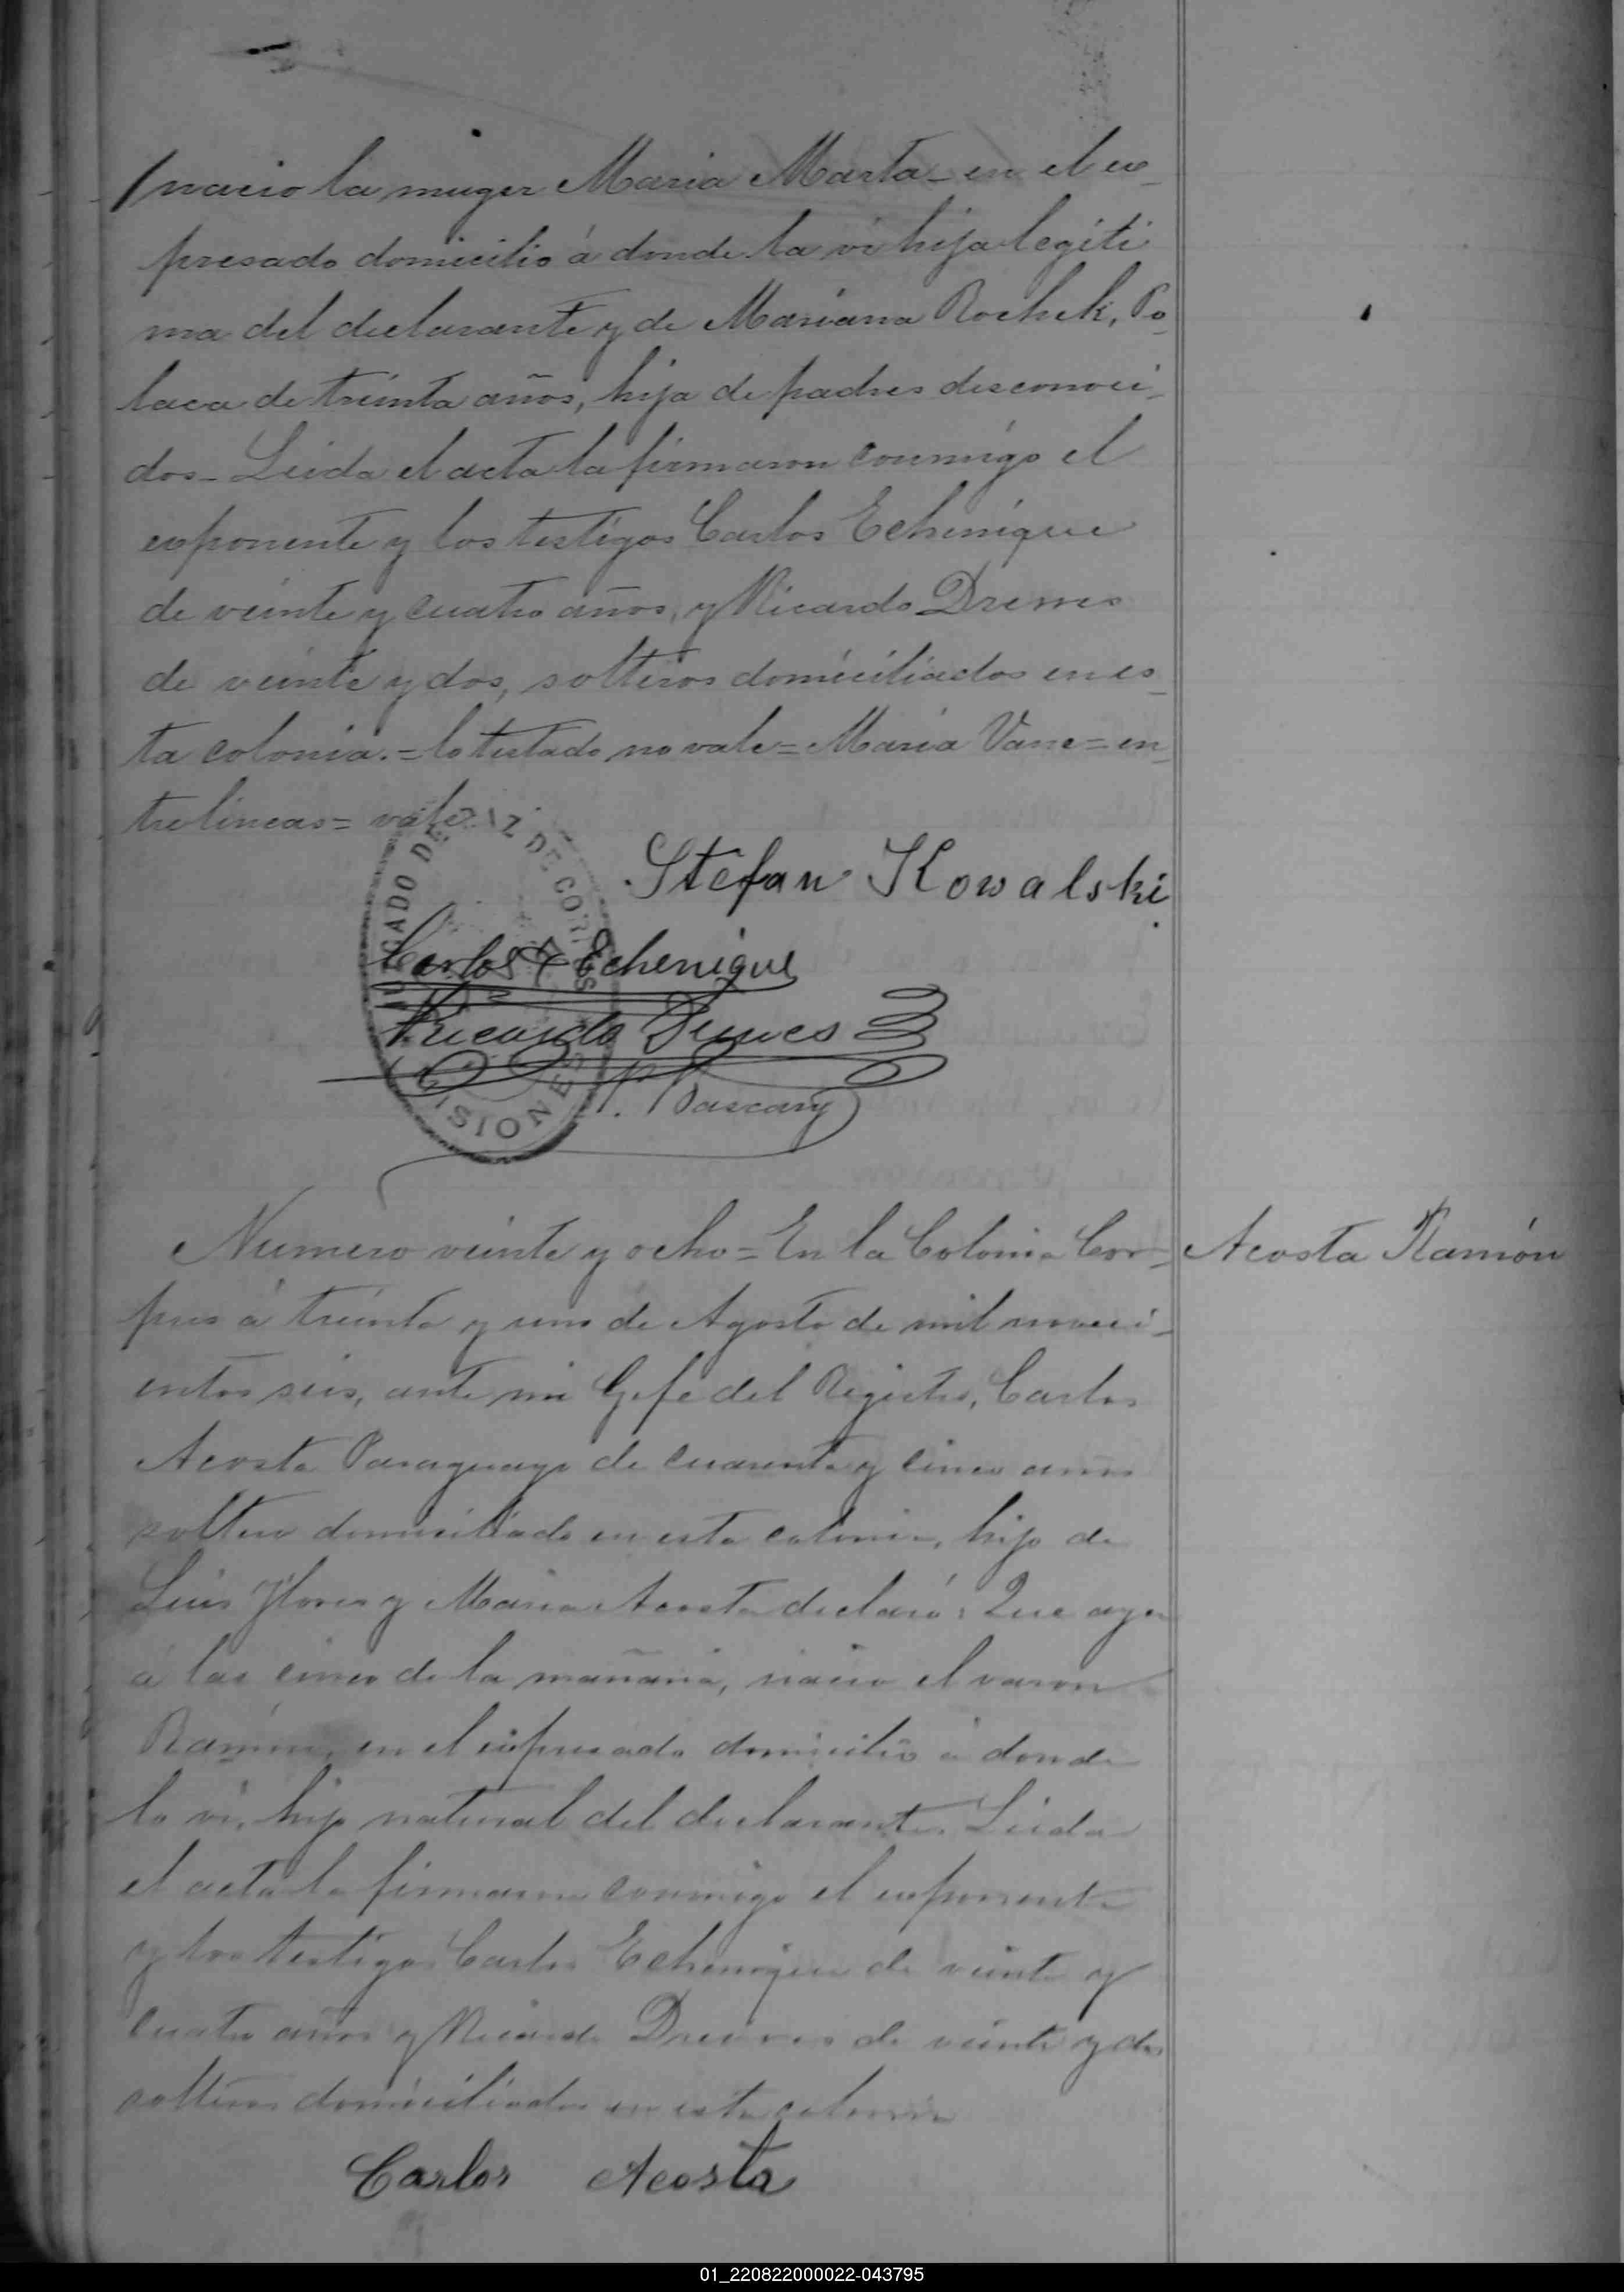 nacio la muger Maria Marta - en el ex-
presado domicilio á donde la ví hija legiti
ma del declarante y de Mariana Rochek, Po-
laca de treinta años, hija de padres desconoci-
dos - Leida el acta la firmaron conmigo el
exponente y los testigos Carlos Echenique
de veinte y cuatro años, y Ricardo Drewes
de veinte y dos, solteros domiciliados en es-
ta colonia. = lo testado no vale = Maria Vane = en-
trelineas = vale
JUZGADO DE PAZ DE CORPUS
MISIONES
Stefan Kowalski
Carlos Echenique
Ricardo Drewes
P. Bascary
Numero veinte y ocho = En la Colonia Cor-
Acosta Ramón
pus á treinta y uno de Agosto de mil noveci-
entos seis, ante mi Gefe del Registro, Carlos
Acosta Paraguayo de cuarenta y cinco años
soltero domiciliado en esta colonia, hijo de
Luis Flores y Maria Acosta declaró: Que ayer
á las cinco de la mañana, nacio el varon
Ramón, en el expresado domicilio á donde
lo ví, hijo natural del declarante. Leida
el acta la firmaron conmigo el exponente
y los testigos Carlos Echenique de veinte y
cuatro años y Ricardo Drewes de veinte y dos
solteros domiciliados en esta colonia
Carlos Acosta
01_220822000022-043795